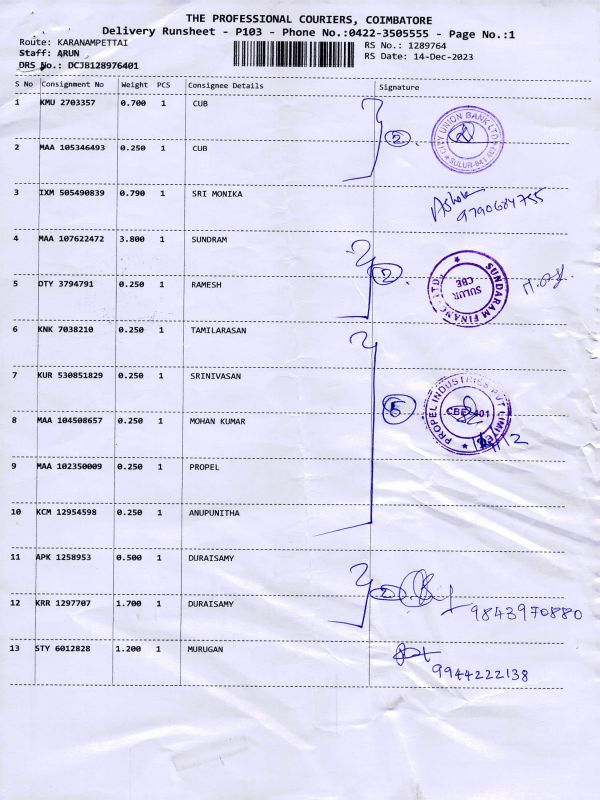 THE PROFESSIONAL COURIERS, COIMBATORE
Delivery Runsheet - P103 - Phone No.:0422-3505555 - Page No.:1
Route: KARANAMPETTAI
RS No.: 1289764
Staff: ARUN
RS Date: 14-Dec-2023
DRS No.: DCJB128976401
S No Consignment No Weight PCS Consignee Details Signature
1 KMU 2703357 0.700 1 CUB
2
CITY UNION BANK LTD
SULUR-641
2 MAA 105346493 0.250 1 CUB
3 IXM 505490839 0.790 1 SRI MONIKA
Ashok
4 MAA 107622472 3.800 1 SUNDRAM
2
SUNDARAM FINANCE LTD.
SULUR
CBE
5 OTY 3794791 0.250 1 RAMESH
6 KNK 7038210 0.250 1 TAMILARASAN
7 KUR 530851829 0.250 1 SRINIVASAN
5
PROPEL INDUSTRIES PVT LIMITED
8 MAA 104508657 0.250 1 MOHAN KUMAR
9 MAA 102350009 0.250 1 PROPEL
10 KCM 12954598 0.250 1 ANUPUNITHA
11 APK 1258953 0.500 1 DURAISAMY
2
12 KRR 1297707 1.700 1 DURAISAMY
9843970880
13 STY 6012828 1.200 1 MURUGAN
9944222138